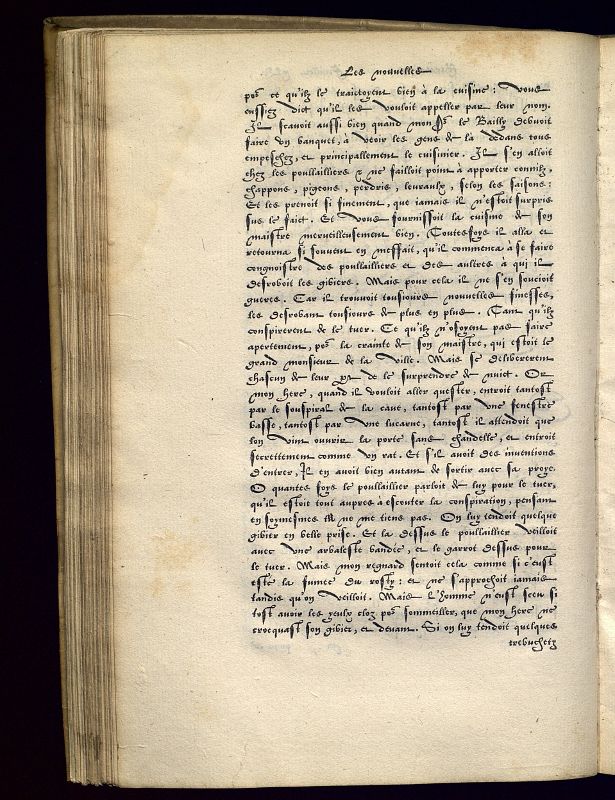 Les nouuelles
po² ce qu'ilz le traictoyent bien à la cuisine: Vous
eussiez dict qu'il les vouloit appeller par leur nom.
Il scauoit aussi bien quand mons² le Bailly debuoit
faire vn banquet, à veoir les gens de la dedans tous
empeschez, et principallement le cuisinier. Il s'en alloit
chez les poullailliers & ne failloit point à apporter connilz,
chappons, pigeons, perdris, leuraulx, selon les saisons:
Et les prenoit si finement, que iamais il n'estoit surpris
sus le faict. Et vous fournissoit la cuisine de son
maistre merueilleusement bien. Toutesfoys il alla et
retourna si souuent en meffait, qu'il commenca à se faire
congnoistre des poullailliers et des aultres à qui il
desroboit les gibiers. Mais pour cela il ne s'en soucioit
gueres. Car il trouuoit tousiours nouuelles finesses,
les desrobant tousiours de plus en plus. Tant qu'ilz
conspirerent de le tuer. Ce qu'ilz n'osoyent pas faire
apertement, po² la crainte de son maistre, qui estoit le
grand monsieur de la ville. Mais se delibererent
chascun de leur part de le surprendre de nuict. Or
mon here, quand il vouloit aller quester, entroit tantost
par le souspiral de la caue, tantost par vne fenestre
basse, tantost par vne lucarne, tantost il attendoit que
lon vint ouurir la porte sans chandelle, et entroit
secrettement comme vn rat. Et s'il auoit des inuentions
d'entrer, Il en auoit bien autant de sortir auec sa proye.
O quantes foys le poullaillier parloit de luy pour le tuer,
qu'il estoit tout aupres à escouter la conspiration, pensant
en soymesmes tu ne me tiens pas. On luy tendoit quelque
gibier en belle prise. Et la dessus le poullaillier veilloit
auec vne arbaleste bandée, et le garrot dessus pour
le tuer. Mais mon regnard sentoit cela comme si c'eust
esté la fumee du rosty: et ne s'approchoit iamais
tandis qu'on veilloit. Mais l'homme n'eust sceu si
tost auoir les yeulx cloz po² sommeiller, que mon here ne
crocquast son gibier, et deuant. Si on luy tendoit quelques
trebuchetz